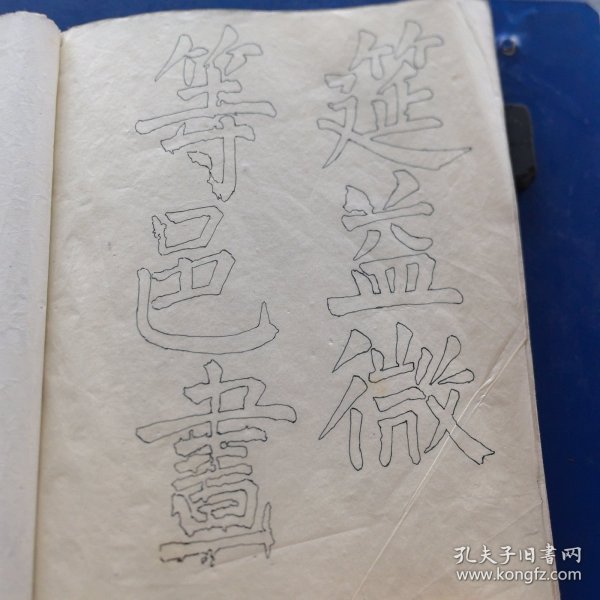 筵益微
等邑畫
孔夫子旧书网
www.kongfz.com